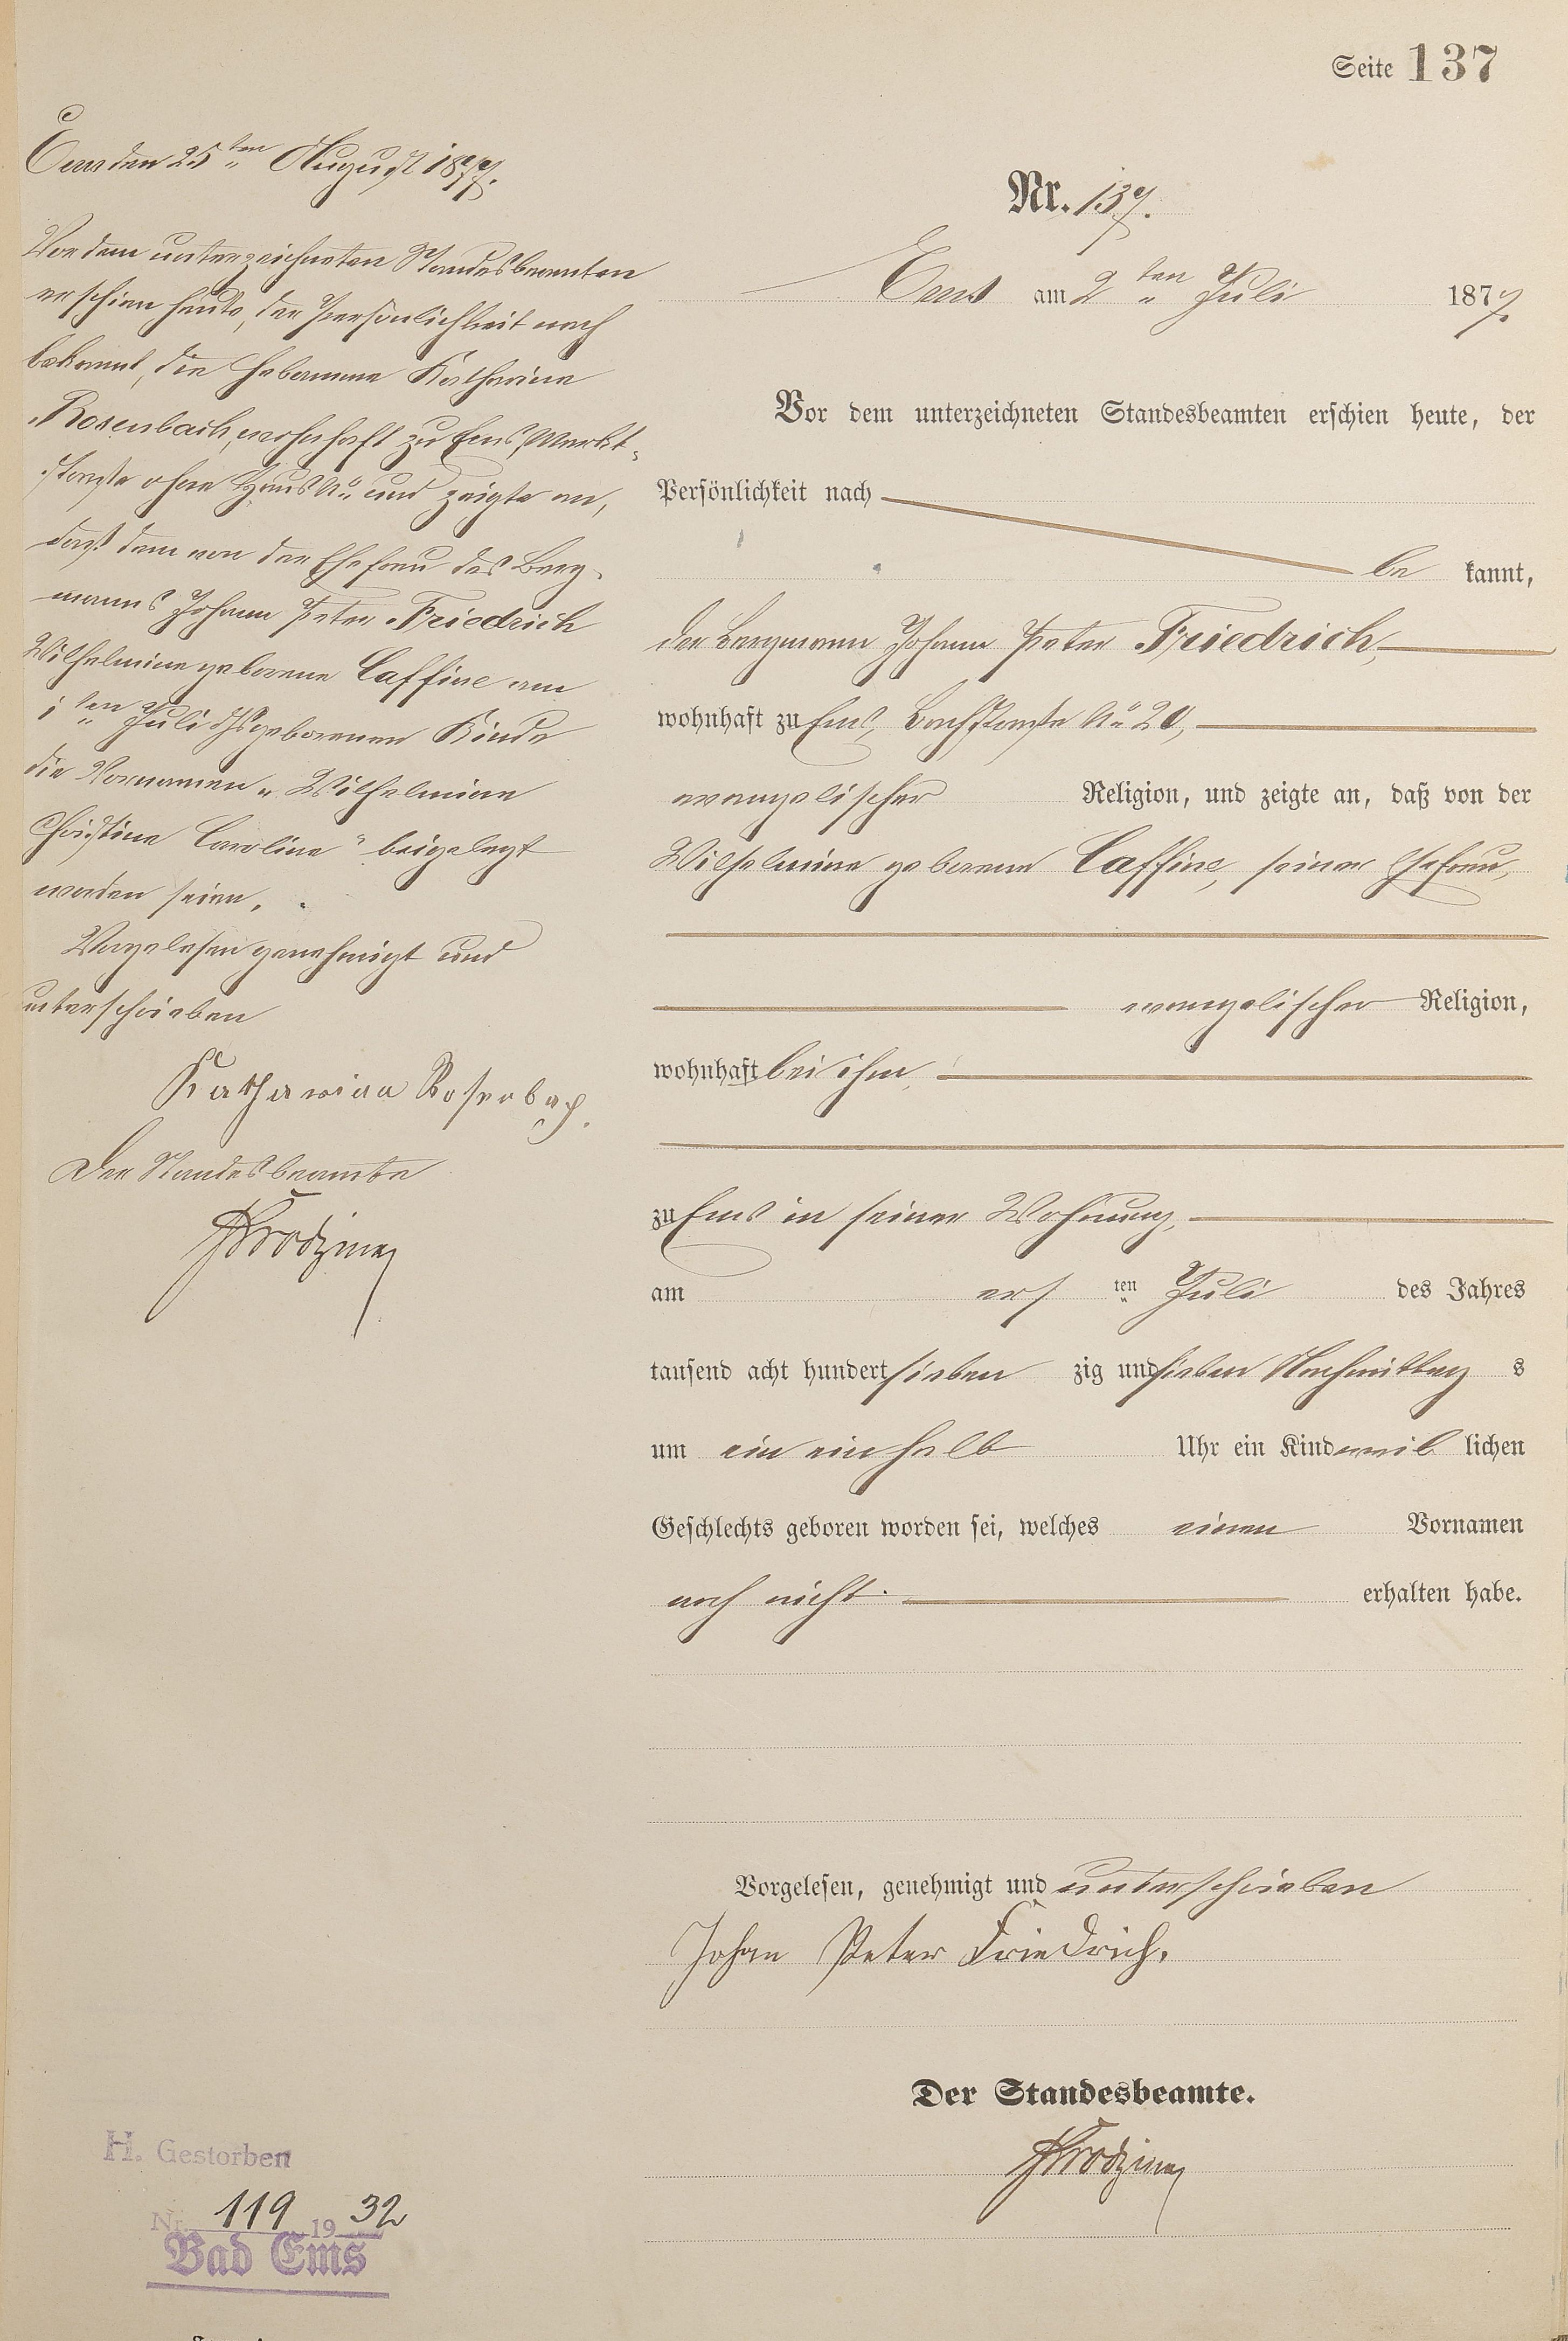 Seite 137
Ems den 25ten August 1877.
Vor dem unterzeichneten Standesbeamten
erschien heute, der Persönlichkeit nach
bekannt, die Hebamme Katharine
Rosenbach, wohnhaft zu Ems, Markt-
straße ohne Haus No. und zeigte an,
daß dem von der Ehefrau des Berg-
manns Johann Peter Friedrich
Wilhelmine geborene Caffine am
1ten Juli geborenen Kinde
die Vornamen „Wilhelmine
Christine Caroline" beigelegt
worden seien.
Vorgelesen genehmigt und
unterschrieben
Katharina Rosenbach.
Der Standesbeamte
Nr. 137.
Ems am 2ten Juli 1877.
Vor dem unterzeichneten Standesbeamten erschien heute, der
Persönlichkeit nach
be kannt,
der Bergmann Johann Peter Friedrich,
wohnhaft zu Ems, Bachstraße No. 20,
evangelischer Religion, und zeigte an, daß von der
Wilhelmine geborene Caffine, seiner Ehefrau,
evangelischer Religion,
wohnhaft bei ihm,
zu Ems in seiner Wohnung,
am ers ten Juli des Jahres
tausend acht hundert sieben zig und sieben Nachmittag s
um ein einhalb Uhr ein Kind weib lichen
Geschlechts geboren worden sei, welches einen Vornamen
noch nicht erhalten habe.
Vorgelesen, genehmigt und unterschrieben
Johan Peter Friedrich.
Der Standesbeamte.
H. Gestorben
Nr. 119 1932
Bad Ems